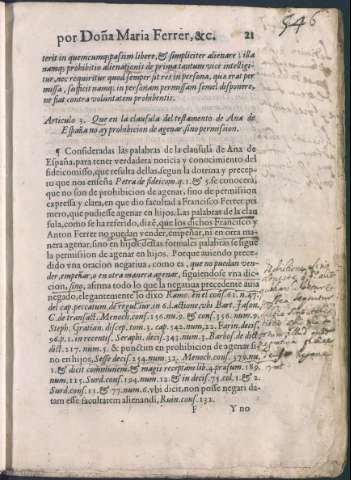 546
por Doña Maria Ferrer, &c. 21
terit in quemcumq; passim libere, & simpliciter alienare; illa
namq; prohibitio alienationis de prima tantum vice intelligi-
tur, nec requiritur quod semper sit res in persona, quæ erat per
missa, sufficit namq; in personam permissam semel disponere,
ne fiat contra voluntatem prohibentis.
Articulo 3. Que en la clausula del testamento de Ana de
España no ay prohibicion de agenar, sino permission.
¶ Consideradas las palabras de la clausula de Ana de
España, para tener verdadera noticia y conocimiento del
fideicomisso, que resulta dellas, segun la dotrina y precep-
to que nos enseña Petra de fideicom. q. 1. & 5. se conocerà,
que no son de prohibicion de agenar, sino de permission
expressa y clara, en que dio facultad a Francisco Ferrer pri
mero, que pudiesse agenar en hijos. Las palabras de la clau
sula, como se ha referido, dizē, que los dichos Francisco y
Anton Ferrer no puedan vender, empeñar, ni en otra ma
nera agenar, sino en hijos: destas formales palabras se sigue
la permission de agenar en hijos. Porque auiendo prece-
dido vna oracion negatiua, como es, que no puedan ven-
der, empeñar, o en otra manera agenar, siguiendose vna dic-
cion, sino, afirma todo lo que la negatiua precedente auia
negado, elegantemente lo dixo Ramo. en el cons. 61. n. 47.
del cap. peccatum, de regul. iur. in 6. l. actione, vbi Bart. Jason,
C. de transact. Menoch. cons. 156. num. 9. & cons. 256. num. 9.
Steph. Gratian. discep. tom. 3. cap. 542. num. 22. Farin. decis.
96. p. 1. in recentis. Seraph. decis. 343. num. 3. Barbos. de dict.
dict. 217. num. 5. & punctim en prohibicion de agenar si
no en hijos, Sesse decis. 254. num. 32. Menoch. cons. 379. nu.
1. & dicit communem & magis receptam lib. 4. præsum. 189.
num. 115. Surd. cons. 194. num. 12. & in decis. 75. col. 1. & 2.
Surd. cons. 11. & 77. num. 6. vbi dicit, non posse negari da-
tam esse facultatem alienandi, Ruin. cons. 132.
F Y no